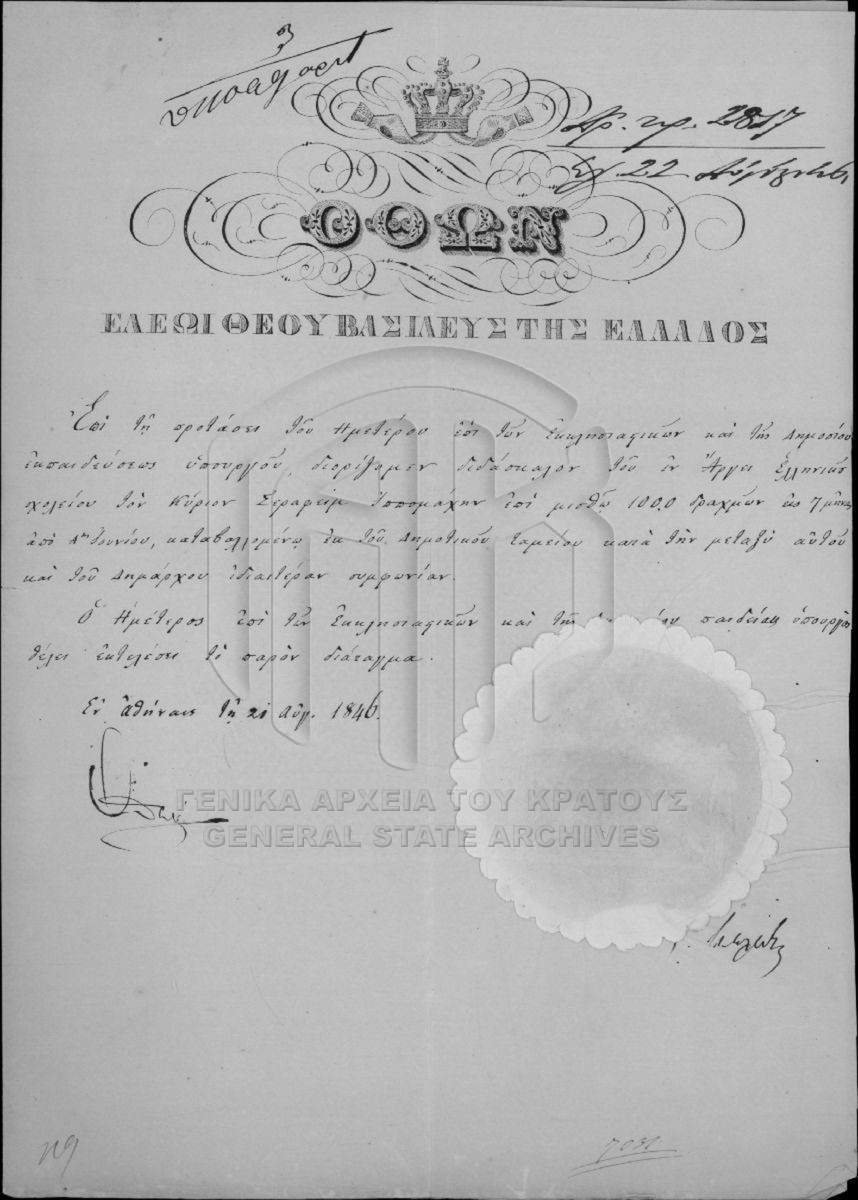 Αρ. πρ. 2817
22 Αὐγούστου
ΟΘΩΝ
ΕΛΕΩΙ ΘΕΟΥ ΒΑΣΙΛΕΥΣ ΤΗΣ ΕΛΛΑΔΟΣ
Ἐπὶ τῇ προτάσει τοῦ Ἡμετέρου ἐπὶ τῶν Ἐκκλησιαστικῶν καὶ τῆς Δημοσίου
ἐκπαιδεύσεως ὑπουργοῦ, διορίζομεν διδάσκαλον τοῦ ἐν Ἄργει Ἑλληνικοῦ
σχολείου τὸν Κύριον Σεραφεὶμ Ἱππομάχην ἐπὶ μισθῷ 100,0 δραχμῶν
ἀπὸ Ἰουνίου, καταβαλλομένῳ ἐκ τοῦ Δημοτικοῦ ταμείου κατὰ τὴν μεταξὺ αὐτοῦ
καὶ τοῦ Δημάρχου ἰδιαιτέραν συμφωνίαν.
Ὁ Ἡμέτερος ἐπὶ τῶν Ἐκκλησιαστικῶν καὶ τῆς παιδείας ὑπουργὸς
θέλει ἐκτελέσει τὸ παρὸν διάταγμα.
Ἐν Ἀθήναις τῇ 21 Αὐγ. 1846.
ΓΕΝΙΚΑ ΑΡΧΕΙΑ ΤΟΥ ΚΡΑΤΟΥΣ
GENERAL STATE ARCHIVES